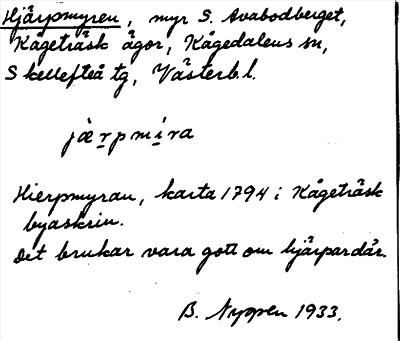 Hjärpmyren, myr S. Avabodberget,
Kågeträsk ägor, Kågedalens sn,
Skellefteå tg, Västerb. l.
jæ̀rpmíra
Hierpmyran, karta 1794 i Kågeträsk
byaskrin.
Det brukar vara gott om hjärpar där.
B. Nyppen 1933.